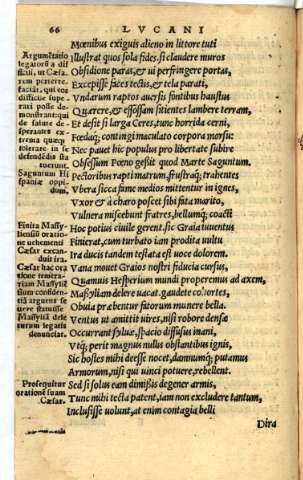 66 LVCANI
Mœnibus exiguis alieno in littore tuti
Illustrat quos sola fides. si claudere muros
Obsidione paras, & ui perfringere portas,
Excepisse faces tectis, & tela parati,
Vndarum raptos auersis fontibus haustus
Quærere, & effossam sitientes lambere terram,
Et desit si larga Ceres, tunc horrida cerni,
Fœdaq; contingi maculato corpora morsu:
Nec pauet hic populus pro libertate subire
Obsessum Pœno gessit quod Marte Saguntum.
Pectoribus rapti matrum, frustraq; trahentes
Vbera sicca fame medios mittentur in ignes,
Vxor & à charo poscet sibi fata marito,
Vulnera miscebunt fratres, bellumq; coacti
Hoc potius ciuile gerent. sic Graia iuuentus
Finierat, cum turbato iam prodita uultu
Ira ducis tandem testata est uoce dolorem.
Vana mouet Graios nostri fiducia cursus,
Quamuis Hesperium mundi properemus ad axem,
Massyliam delere uacat. gaudete cohortes,
Obuia præbentur fatorum munere bella.
Ventus ut amittit uires, nisi robore densæ
Occurrant syluæ, spacio diffusus inani,
Vtq; perit magnus nullus obstantibus ignis,
Sic hostes mihi deesse nocet, damnumq; putamus
Armorum, nisi qui uinci potuere, rebellent.
Sed si solus eam dimissis degener armis,
Tunc mihi tecta patent, iam non excludere tantum,
Inclusisse uolunt, at enim contagia belli
Dira
Argumētatio
legatorū a dif
ficili, ut Cæsa
rem perperre-
factāt, qui eos
difficile supe-
rari posse de-
monstrantque
de salute de-
sperantes ex-
trema quæq;
tolerare in se
defendēdis fu
tuerunt.
Saguntum Hi
spaniæ oppi-
dum.
Finita Massy
liensiū oratio
ne uehementi
Cæsar excan-
duit ira.
Cæsar hac ora
tione temera-
riam Massyliē
sium considen
tiā arguens se
uere statuisse
Massyliā dele
turum legatis
denunciat.
Prosequitur
orationē suam
Cæsar.